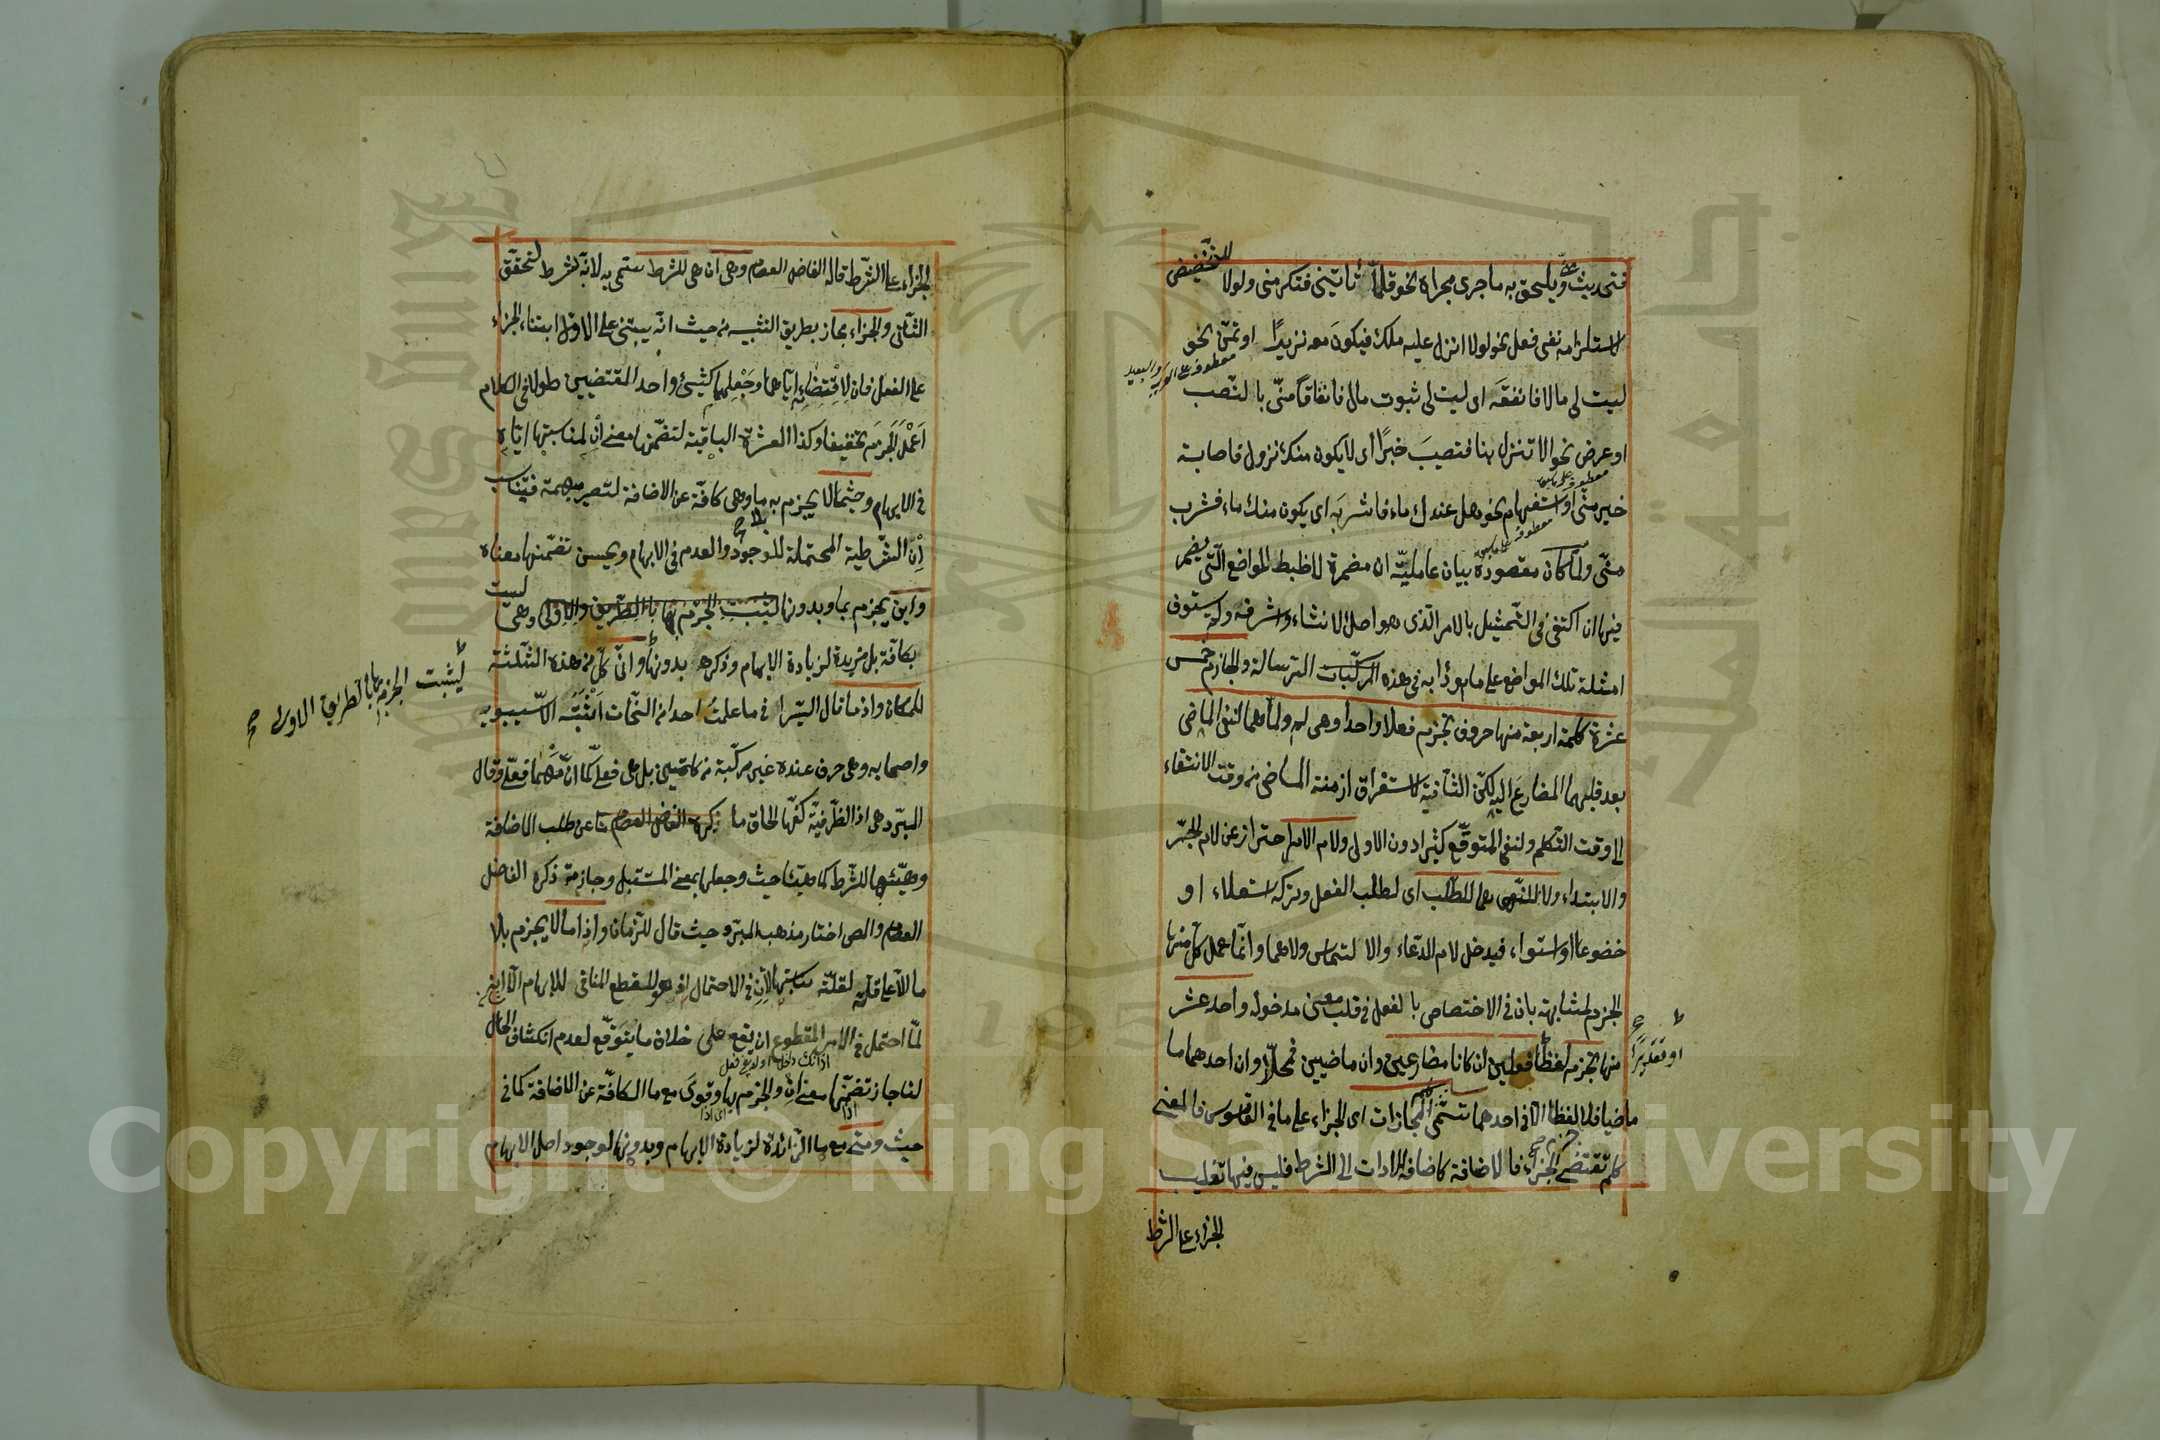 فتحديث ويلحق به ما جرى مجراه نحو قلما تأتيني فتكرمني ولولا للتحضيض
لاستلزامه نفي فعل نحو لولا انزل عليه ملك فيكون معه نذيرا او تمنّ نحو
ليت لي مالا فانفقه اى ليت لي ثبوت مال فانفاقا منّى بالنّصب
معطوف على القريب والبعيد
او عرض نحو الا تنزل بنا فتصيب خيرًا أى لا يكون منك نزول فاصابة
خير منّى او استفهام نحو هل عندك ماء فاشربه اى يكون منك ماء فشرب
منّى ولمّا كان مقصوده بيان عامليّة ان مضمرة لا ضبط المواضع الّتى يضمر
فيها ان اكتفى فى التّمثيل بالامر الّذى هو اصل الانشاء واشرفه ولم يستوف
امثلة تلك المواضع على ما هو دأبه فى هذه الرسالة والجازم خمس
عشرة كلمة اربعة منها حروف تجزم فعلا واحدا وهى لم ولمّا وهما لنفى الماضى
بعد قلبهما المضارع اليه لكنّ الثّانية لاستغراق ازمنة الماضى من وقت الانتفاء
الى وقت التّكلم ولنفى المتوقّع كثيرا دون الاولى ولام الامر احتراز عن لام الجرّ
والابتداء ولا للنّهى هما للطّلب اى لطلب الفعل وتركه استعلاء او
خضوعا او استواء فيدخل لام الدّعاء والالتماس ولاهما وانّما عمل كلّ منها
الجزم لمشابهة بان فى الاختصاص بالفعل فى قلب معنى مدخوله واحد عشر
منها تجزم لفظا فعلين ان كانا مضارعين وان ماضيين فمحلّا وان احدهما ما
او تقديرا صح
ماضيا فلا لفظا الّا فى احدهما تسمّى كلم المجازات اى الجزاء على ما فى القاموس فالمعنى
كلم تقتضى الجزاء فالاضافة كاضافة الادات الى الشرط فليس فيها تغليب
الجزاء على الشرط
الجزاء على الشّرط قاله الفاضل العصام وهى ان هى للشرط ستمى به لانّه شرط لتحقّق
الثّانى والجزاء مجاز بطريق التشبيه من حيث انّه يبتنى على الاوّل ابتناء الجزاء
على الفعل فان لاقتضائه ايّاهما وجعلهما كشىء واحد المقتضيين طولا فى الكلام
اعمل الجزم تخفيفا وكذا العشرة الباقية لتضمّنها معنى أن لمناسبتها ايّاه
فى الابهام وحيثما لا يجزم به بلا ما وهى كافّة عن الاضافة لتصير مبهمة فيناسب
إن الشّرطية المحتملة للوجود والعدم فى الابهام ويحسن تضمّنها معناه
واين يجزم بما وبدونها ليثبت الجزم بها بالطّريق الاولى وهى ليست
ليثبت الجزم بها بالطريق الاولى صح
بكافّة بل مزيدة لزيادة الابهام وذكره بدونها وانّى كلّ من هذه الثّلثة
للمكان واذما قال السّيرا فى ما علمت احدا من النّحات اثبته الّا سيبويه
واصحابه وهى حرف عنده غير مركّبة من كلمتين بل هى فعلى كما انّ مهما فعلى وقال
المبرّد هى اذ الظّرفيّة كفّها الحاق ما ذكره الفاضل العصام عن طلب الاضافة
وهيّئتها للشّرط كما هيّئت حيث وجعلها بمعنى المستقبل وجازمة ذكره الفاضل
العصام والمص اختار مذهب المبرّد حيث قال للزّمان واذا ما لا يجزم بلا
ما الّا على قلّة لقلّة مناسبتها لإن فى الاحتمال اذ هو للمقطع المنافى للابهام الّا انه
لمّا احتمل فى الامر المقطوع ان يقع على خلاف ما يتوقّع لعدم انكشاف الحال
لنا جاز تضمّنها معنى ان والجزم بها وقوى مع ما الكافّة عن الاضافة كما فى
حيث ومتى مع ما الزّائدة لزيادة الابهام وبدونها لوجود اصل الابهام
Copyright © King Saud University